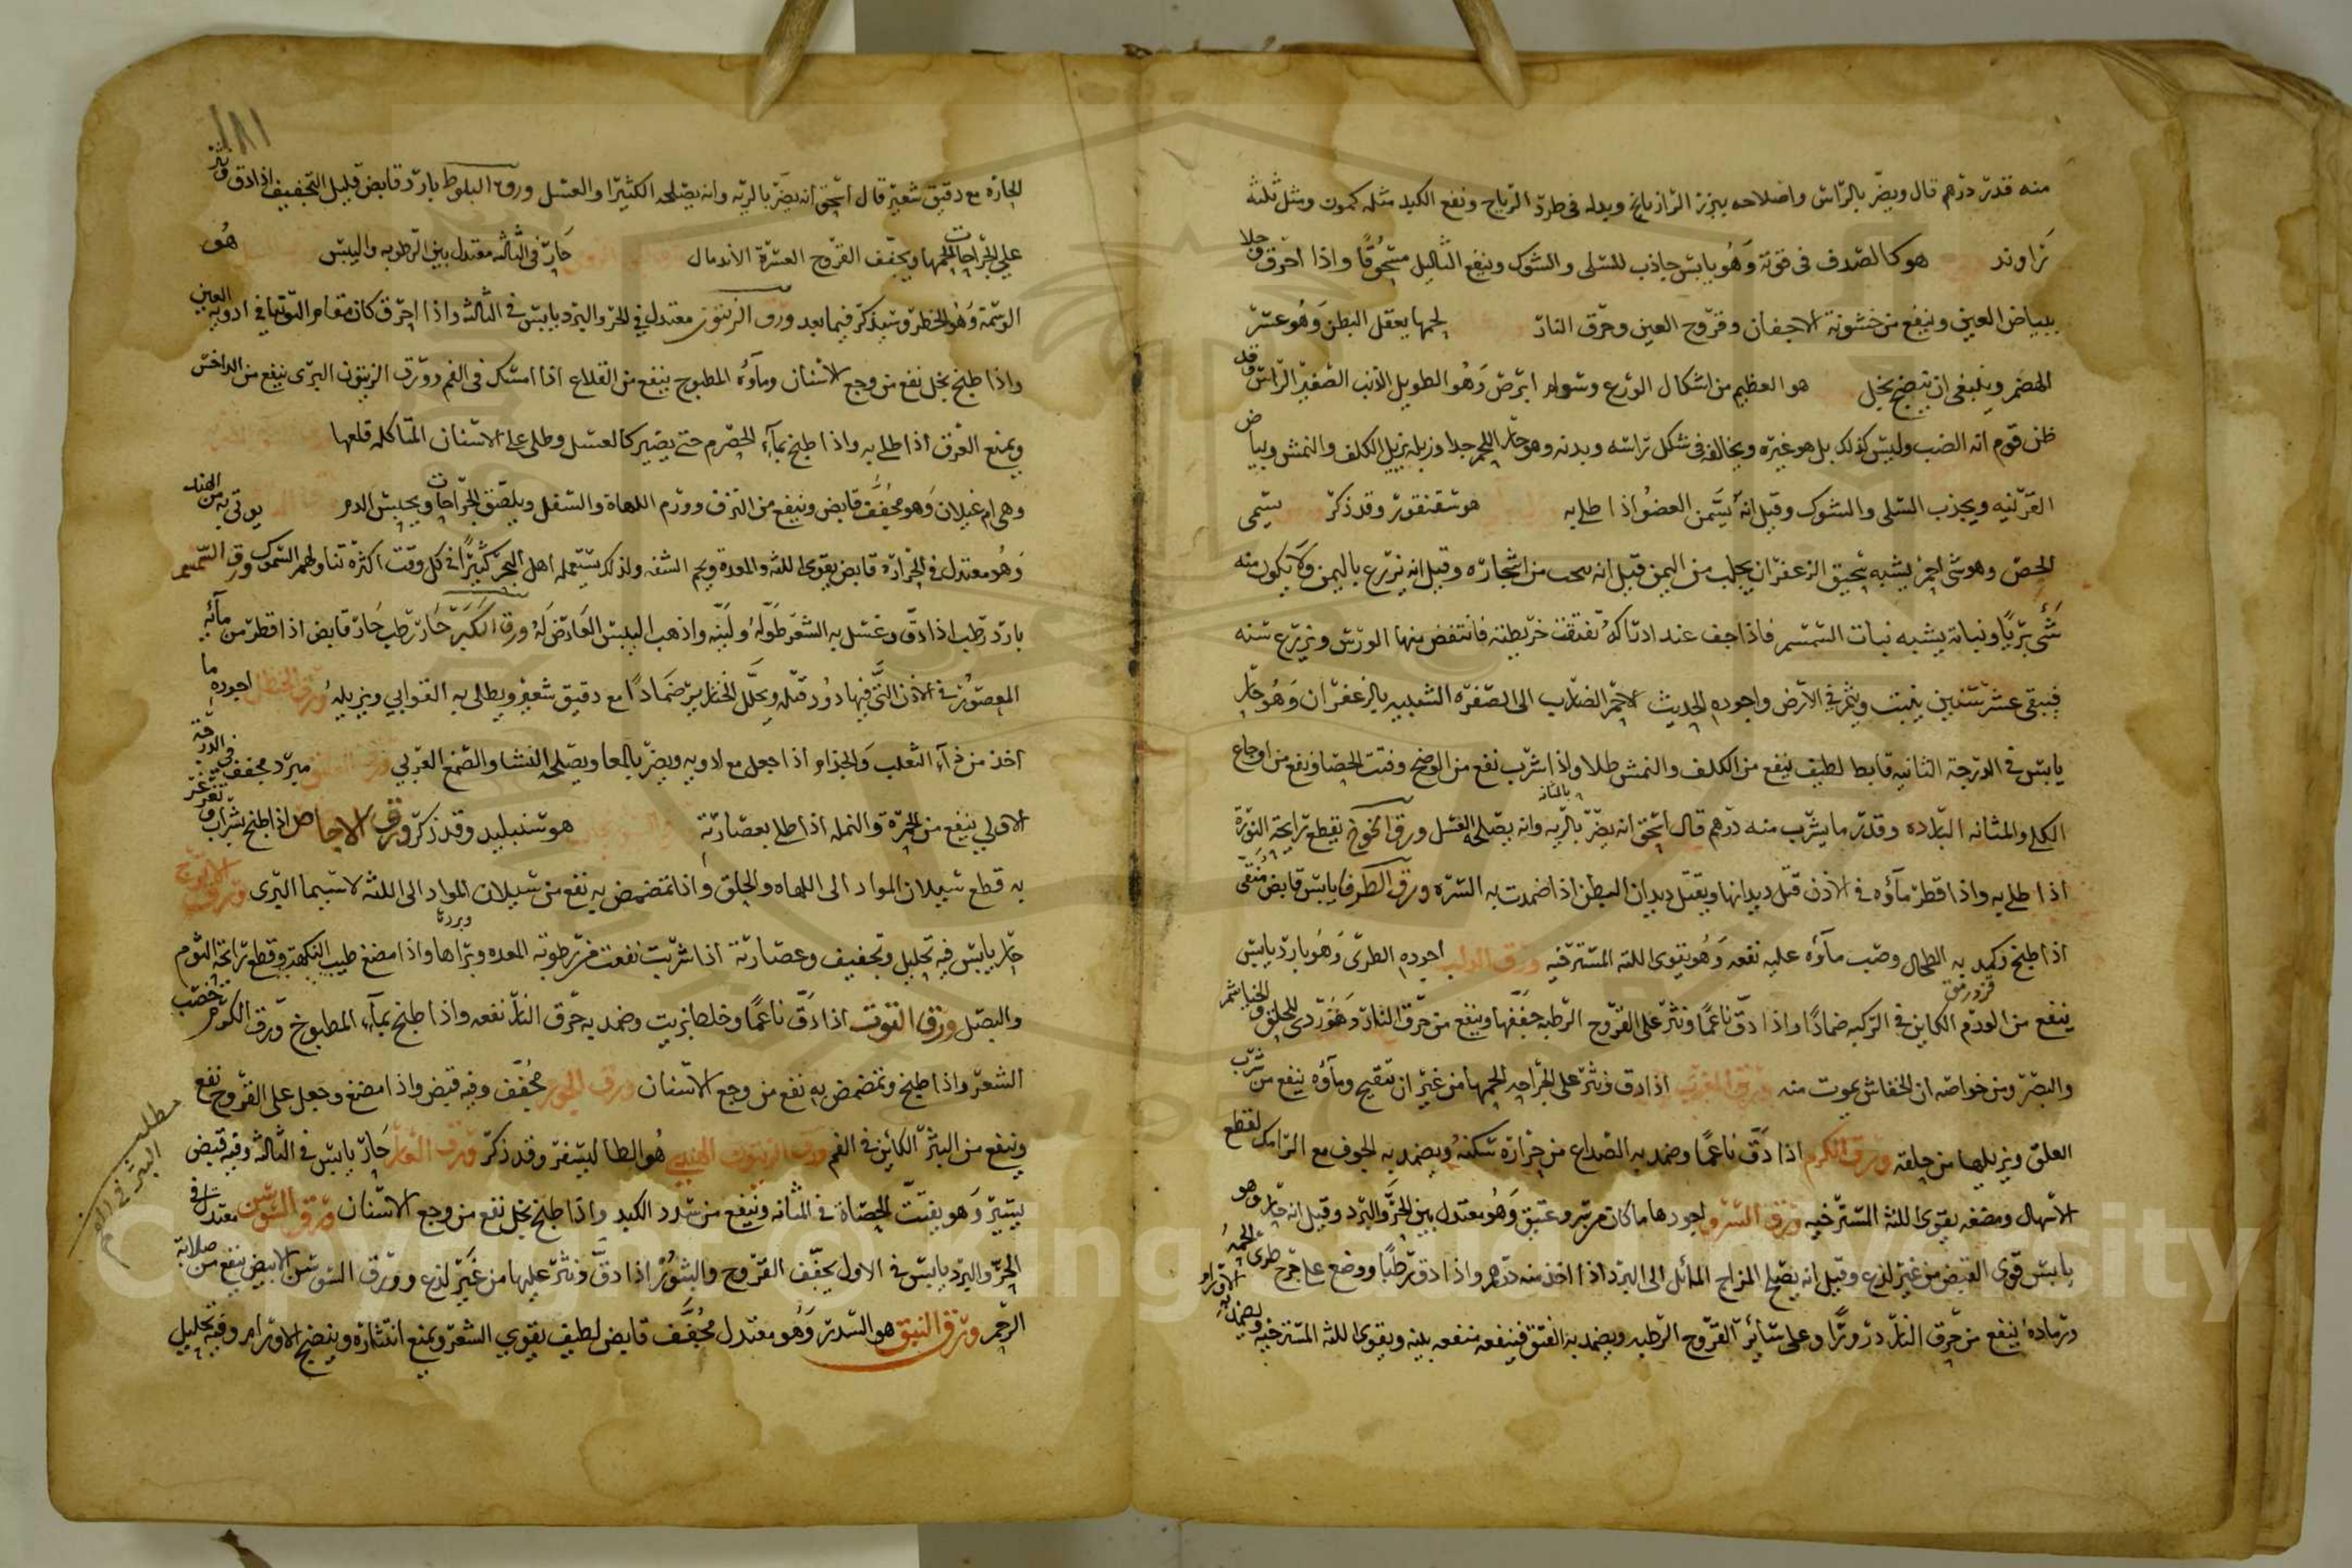 منه قدر درهم قال ويضر بالراس واصلاحه ببزر الرازيانج وبدله في طرد الرياح ونفع الكبد مثله كمون ومثل ثلثه
زراوند هو كالصدف في قوته وهو يابس جاذب للسلى والشوك وينفع الثاليل مسحوقا واذا احرق جلا
بياض العين وينفع من خشونة الاجفان وقروح العين وحرق النار لحمها يعقل البطن وهو عسر
الهضم وينبغي ان ينضج بخل هو العظيم من اشكال الوزع وسوام ابرص وهو الطويل الذنب الصغير الراس وقد
ظن قوم انه الضب وليس كذلك بل هو غيره ويخالفه في شكل راسه وبدنه وهو حار اللحم جدا وزبله يزيل الكلف والنمش وبياض
القرنيه ويجذب السلى والشوك وقيل انه يسمن العضو اذا طلي به هو سقنقور وقد ذكر يسمى
الحص وهو شي احمر يشبه سحيق الزعفران يجلب من اليمن قيل انه من اشجاره وقيل انه يزرع باليمن ولا يكون منه
شي بريا ونباته يشبه نبات السمسم فاذا جف عند ادراكه تفتقت خريطته فانتفض منها الورس ويزرع سنه
فيبقى عشر سنين ينبت ويثمر في الارض واجوده الحديث الاحمر الضارب الى الصفره الشبيه بالزعفران وهو حار
يابس في الدرجة الثانيه قابض لطيف ينفع من الكلف والنمش طلا واذا شرب نفع من الوضح وفتت الحصا ونفع من اوجاع
الكلى والمثانه البارده وقدر ما يشرب منه درهم قال اسحق انه يضر بالريه وانه يصلحه العسل ورق الخوخ يقطع رايحة النورة
بالمثانه
اذا طلي به واذا قطر ماؤه في الاذن قتل ديدانها ويقتل ديدان البطن اذا ضمدت به السره ورق الطرفا يابس قابض منقى
اذا طبخ وكمد به الطحال وصب ماؤه عليه نفعه وهو يقوى اللثه المسترخيه ورق الدلب اجوده الطرى وهو بارد يابس
ينفع من الورم الكاين في الركبه ضمادا واذا دق ناعما ونثر على القروح الرطبه جففها وينفع من حرق النار وهو ردى للحلق والخياشم
والبصر ومن خواصه ان الخفاش يموت منه ورق الغرب اذا دق ونثر على الجراحه الحمها من غير ان تتقيح وماؤه ينفع من شرب
العلق ويزيلها من حلقه ورق الكرم اذا دق ناعما وضمد به الصداع من حرارة سكنه ويضمد به الجوف مع الرامك لقطع
الاسهال ومضغه يقوى اللثه المسترخيه ورق السرو اجودها ما كان مر عتيق وهو معتدل بين الحر والبرد وقيل انه حار وهو
يابس قوى القبض من غير لذع وقيل انه يصلح المزاج المائل الى البرد اذا اخذ منه درهم واذا دق رطبا ووضع على جرح طرى الحمه
ورماده ينفع من حرق النار ذرورا وعلى سائر القروح الرطبه ويضمد به الفتق فينفعه منفعه بينه ويقوى اللثه المسترخيه ويضمد به الاورام
١٨١
الحاره مع دقيق شعير قال اسحق انه يضر بالريه وانه يصلحه الكثيرا والعسل ورق البلوط بارد قابض قليل التجفيف اذا دق ونثر
على الجراحات الحمها ويجفف القروح العسرة الاندمال حار في الثالثه معتدل بين الرطوبه واليبس هو
الوسمة وهو الخطر وسيذكر فيما بعد ورق الزيتون معتدل في الحر والبرد يابس في الثالثه واذا احرق كان مقام التوتيا في ادوية العين
واذا طبخ بخل نفع من وجع الاسنان وماؤه المطبوخ ينفع من القلاع اذا امسك في الفم وورق الزيتون البرى ينفع من الداحس
ويمنع العرق اذا طلي به واذا طبخ بماء الحصرم حتى يصير كالعسل وطلي على الاسنان المتاكله قلعها
وهي ام غيلان وهو مجفف قابض وينفع من النزف وورم اللهاة والسفل ويلصق الجراحات ويحبس الدم يوتى به من الهند
وهو معتدل في الحرارة قابض يقوى اللثه والمعدة ويحمر الشفه ولذلك يستعمله اهل البحر كثيرا في كل وقت اكثره تناولهم السمك ورق السمسم
بارد رطب اذا دق وغسل به الشعر طوله ولينه واذهب اليبس العارض له ورق الكبر حار رطب حاد قابض اذا قطر من مائه
المعصور في الاذن التي فيها دود قتله ويحلل الخنازير ضمادا مع دقيق شعير ويطلى به القوابي ويزيله ورق الحنظل اجوده ما
اخذ من داء الثعلب والجذام اذا جعل مع الادويه ويضر بالمعا ويصلحه النشا والصمغ العربي ورق العليق مبرد مجفف في الدرجة
الاولي ينفع من الحمرة والنمله اذا طلي بعصارته هو سنبليد وقد ذكر ورق الاجاص اذا طبخ بشراب وتغرغر
به قطع سيلان المواد الى اللهاه والحلق واذا تمضمض به نفع من سيلان المواد الى اللثه لا سيما البرى ورق الاترج
حار يابس فيه تحليل وتجفيف وعصارته اذا شربت نفعت من رطوبة المعده وبردها واذا مضغ طيب النكهة وقطع رايحة الثوم
والبصل ورق التوت اذا دق ناعما وخلط بزيت وضمد به حرق النار نفعه واذا طبخ بماء المطبوخ ورق الكرم خضب
الشعر واذا طبخ وتمضمض به نفع من وجع الاسنان ورق الجوز مجفف وفيه قبض واذا مضغ وجعل على القروح نفع
وينفع من البثر الكاين في الفم ورق الزيتون الهندي هو الطاليسفر وقد ذكر ورق الغار حار يابس في الثالثه وفيه قبض
يسير وهو يفتت الحصاة في المثانه وينفع من سدد الكبد واذا طبخ بخل نفع من وجع الاسنان ورق السوسن معتدل في
الحر والبرد يابس في الاول يجفف القروح والبثور اذا دق ونثر عليها من غير لذع وورق السوسن الابيض ينفع من صلابة
الرحم ورق النبق هو السدر وهو معتدل مجفف قابض لطيف يقوي الشعر ويمنع انتثاره وينضج الاورام وفيه تحليل
مطلب البثر في الفم
Copyright © King Saud University
1957